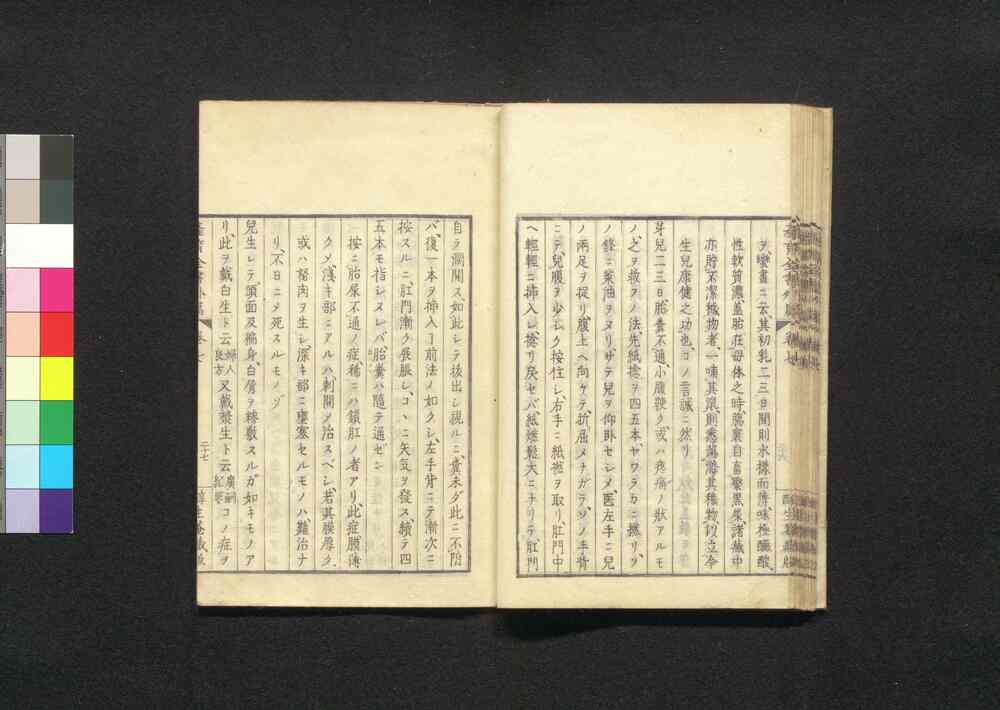 ヲ、蠻書ニ云、其初乳二三日間則水樣而薄、味極醶酸、
性軟質濃、蓋胎在母体之時、腸裏自畜聚黒屎、諸絨中
亦貯不潔穢物者、一哺其乳、則悉蕩滌其穢物、以立令
生兒康健之功也、コノ言誠ニ然リ、
芽兒二三日、胎糞不通、小腹硬ク、或ハ疼痛ノ狀アルモ
ノ、之ヲ救フノ法、先紙捻ヲ四五本、ヤワラカニ撚リ、ソ
ノ鋒ニ菜油ヲヌリ、サテ兒ヲ仰臥セシメ、医左手ニ兒
ノ兩足ヲ捉リ、腹上ヘ向ケテ折屈メナガラ、ソノ手背
ニテ、兒腹ヲ少シク按住シ、右手ニ紙捻ヲ取リ、肛門中
ヘ輕輕ニ挿入シ、捻リ戻セバ、紙燃鬆大ニナリテ、肛門
自ラ濶開ス、如此シテ後出シ視ルニ、糞未ダ此ニ不附
バ、復一本ヲ挿入、了前法ノ如クシ、左手背ニテ漸次ニ
按スルニ、肛門漸ク展脹シ、コヽニ矢気ヲ發ス、續テ四
五本モ指シヌレバ、胎糞ハ随テ通ゼン
按ニ胎屎不通ノ症、稀ニハ鎖肛ノ者アリ、此症膜薄
クメ淺キ部ニアルハ、刺開メ治スベシ、若其膜厚ク、
或ハ努肉ヲ生シ、深キ部ニ壅塞セルモノハ、難治ナ
リ、不日ニメ死スルモノゾ
兒生レテ頭面及徧身、白膏ヲ糝敷スルガ如キモノア
リ、此ヲ戴白生ト云 婦人良方 又戴𣫍生ト云 廣嗣紀要 コノ症ヲ
二十七